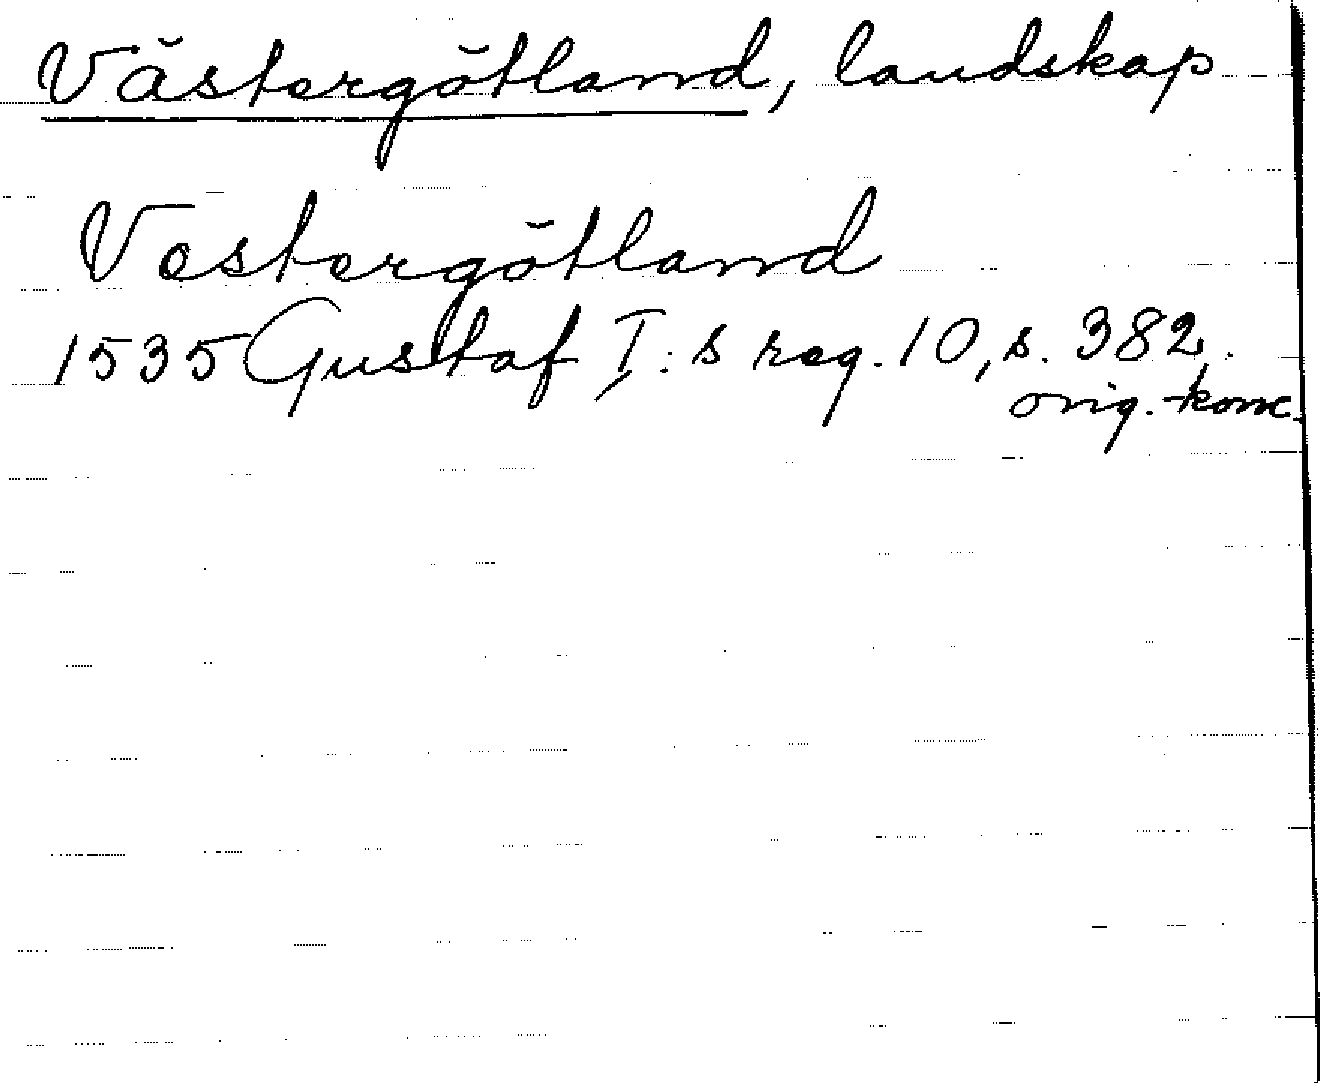 Västergötland, landskap
Vestergötland
1535 Gustaf I:s reg. 10, s. 382.
orig.-konc.